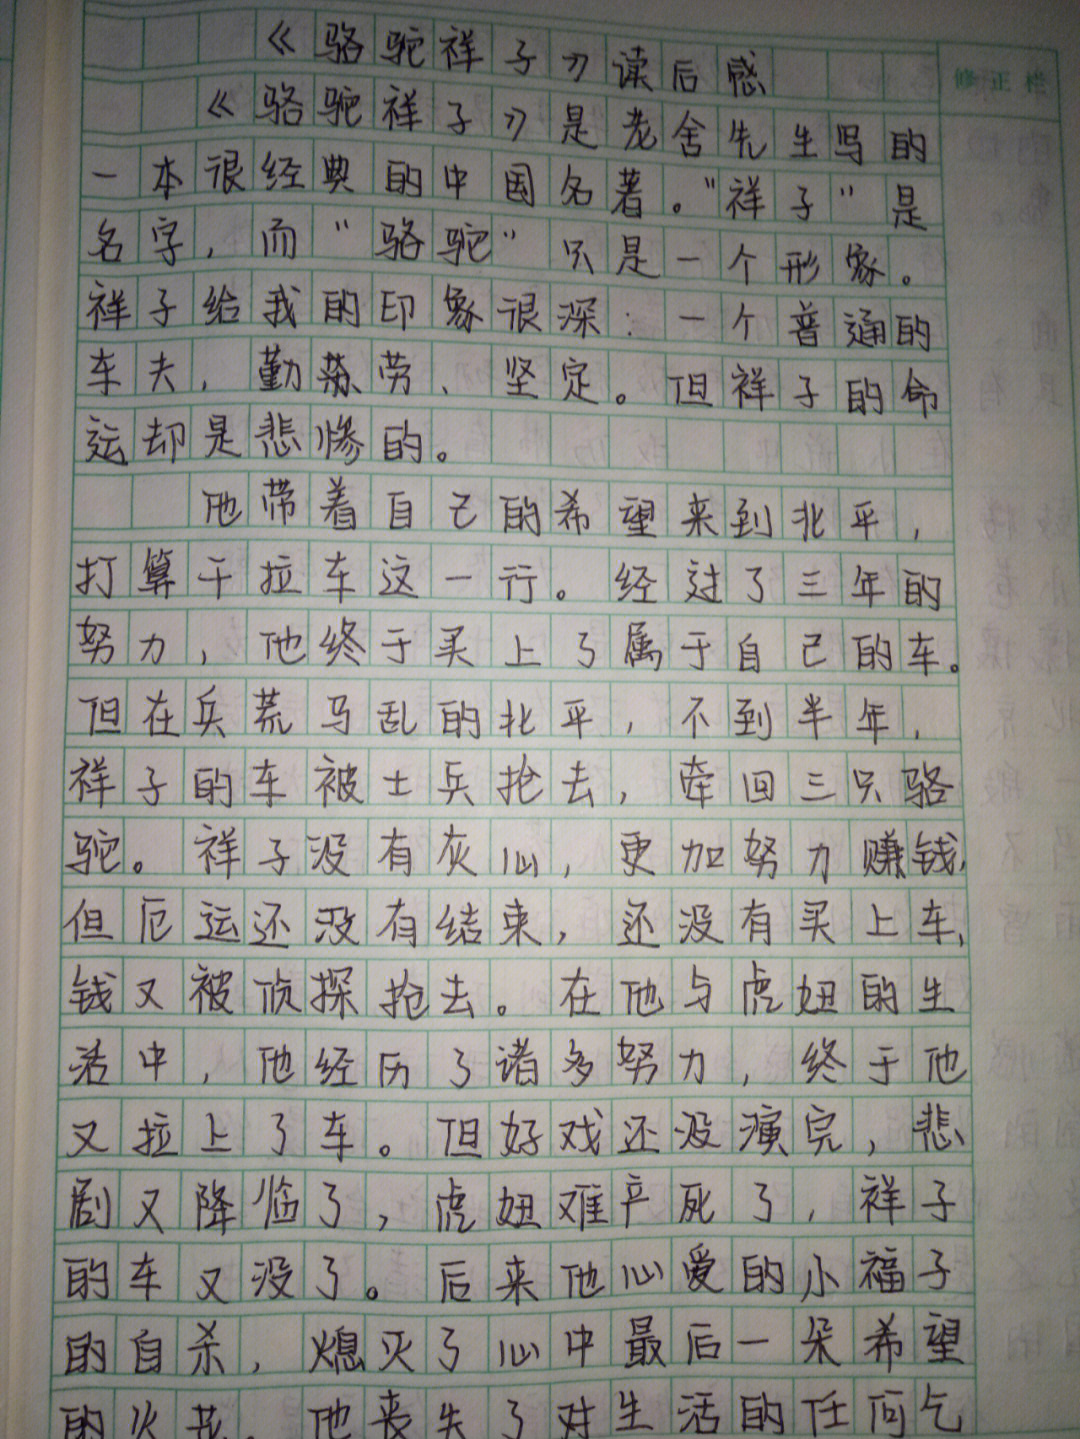 《骆驼祥子》读后感
修正栏
《骆驼祥子》是老舍先生写的
一本很经典的中国名著。"祥子"是
名字，而"骆驼"只是一个形象。
祥子给我的印象很深：一个普通的
车夫，勤劳、坚定。但祥子的命
运却是悲惨的。
他带着自己的希望来到北平，
打算干拉车这一行。经过了三年的
努力，他终于买上了属于自己的车。
但在兵荒马乱的北平，不到半年，
祥子的车被士兵抢去，牵回三只骆
驼。祥子没有灰心，更加努力赚钱，
但厄运还没有结束，还没有买上车，
钱又被侦探抢去。在他与虎妞的生
活中，他经历了诸多努力，终于他
又拉上了车。但好戏还没演完，悲
剧又降临了，虎妞难产死了，祥子
的车又没了。后来他心爱的小福子
的自杀，熄灭了心中最后一朵希望
的火花。他丧失了对生活的任何乞